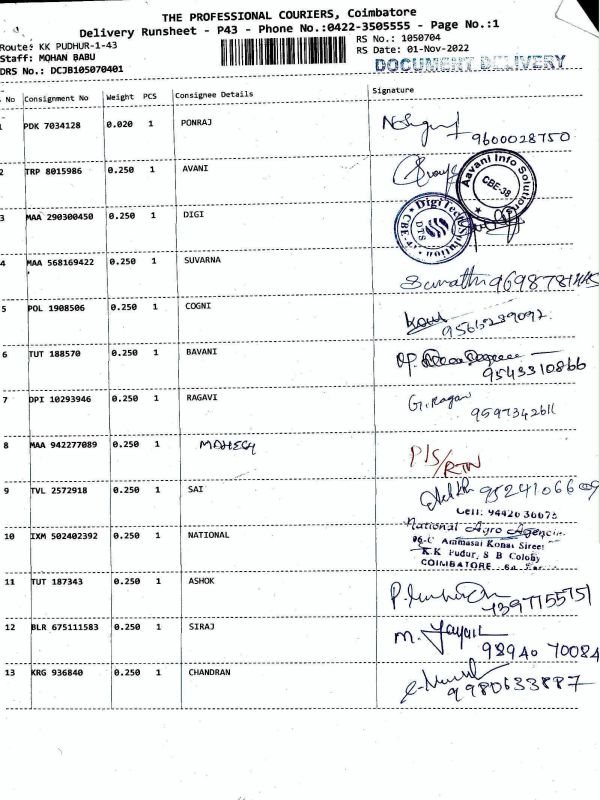 THE PROFESSIONAL COURIERS, Coimbatore
Delivery Runsheet - P43 - Phone No.:0422-3505555 - Page No.:1
Route: KK PUDHUR-1-43 RS No.: 1050704
Staff: MOHAN BABU RS Date: 01-Nov-2022
DRS No.: DCJB105070401 DOCUMENT DELIVERY
No Consignment No Weight PCS Consignee Details Signature
1 PDK 7034128 0.020 1 PONRAJ
9600028750
2 TRP 8015986 0.250 1 AVANI
Aavani Info Solutions CBE-38
3 MAA 290300450 0.250 1 DIGI
DigiTech Solution DTS
4 MAA 568169422 0.250 1 SUVARNA
5 POL 1908506 0.250 1 COGNI
6 TUT 188570 0.250 1 BAVANI
9543310866
7 DPI 10293946 0.250 1 RAGAVI G. Ragavi
9597342611
8 MAA 942277089 0.250 1 MAHESH
P/S/RTN
9 TVL 2572918 0.250 1 SAI
Cell: 94420 30073
10 IXM 502402392 0.250 1 NATIONAL National Agro Agencies
96-C Ammasai Konar Street
K.K Pudur, S B Colony
COIMBATORE
11 TUT 187343 0.250 1 ASHOK
12 BLR 675111583 0.250 1 SIRAJ
98940 70084
13 KRG 936840 0.250 1 CHANDRAN
9980633887